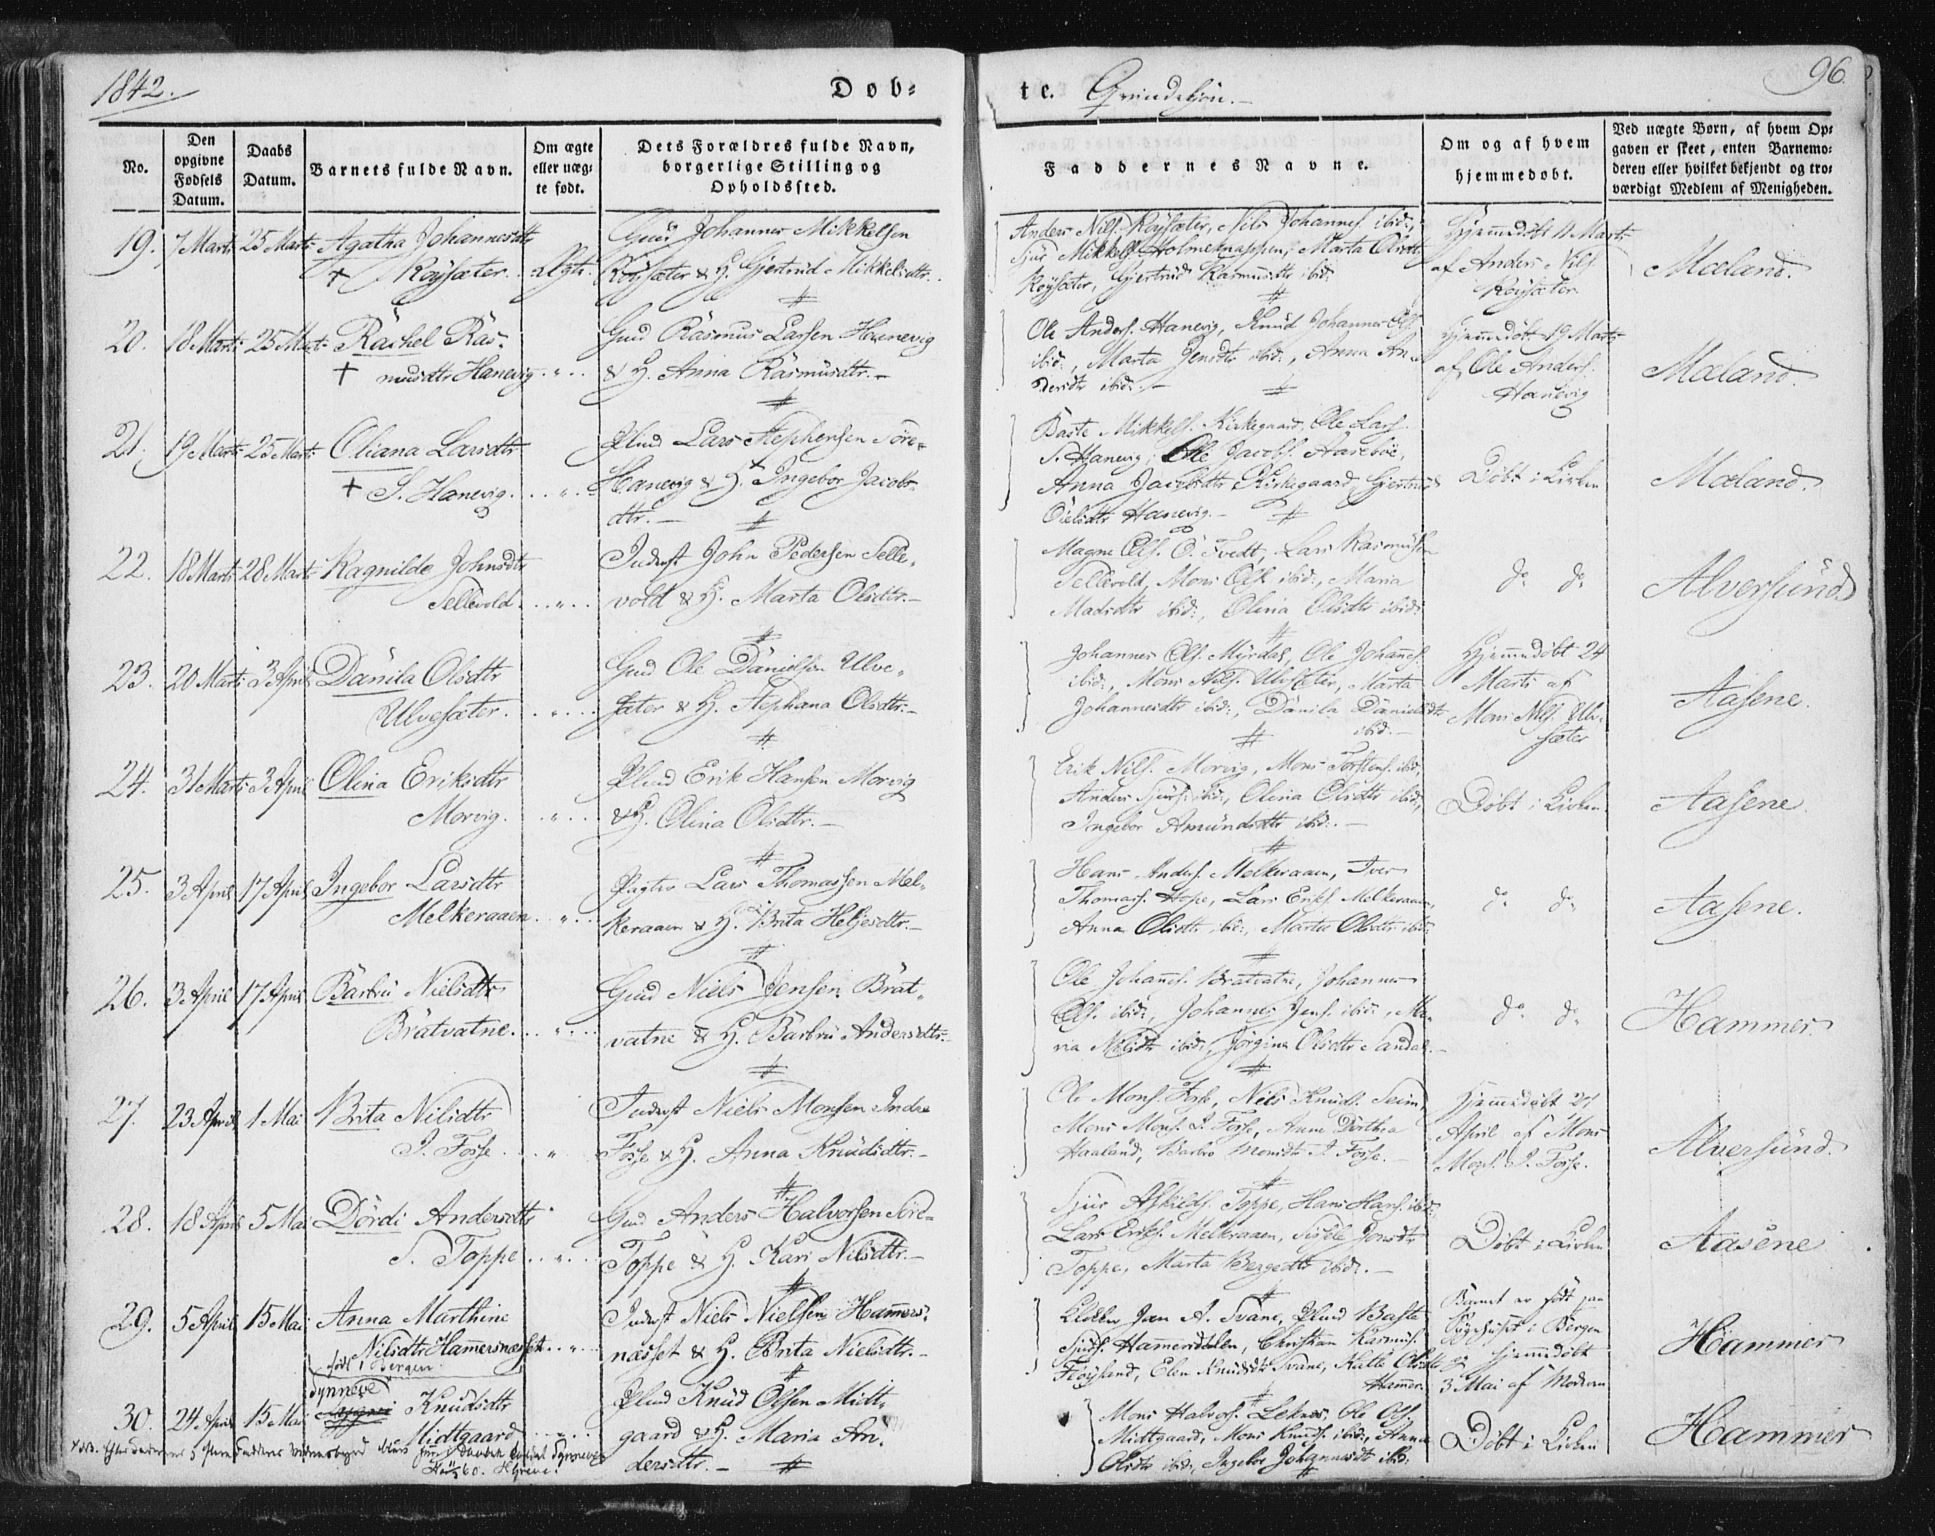 1842.
Døb-
te. Qvindekjøn.
96.
No.
Den opgivne Fødsels Datum.
Daabs Datum.
Barnets fulde Navn.
Om ægte eller uægte født.
Dets Forældres fulde Navn, borgerlige Stilling og Opholdssted.
Faddernes Navne.
Om og af hvem hjemmedøbt.
Ved uægte Børn, af hvem Op-
gaven er skeet, enten Barnemo-
deren eller hvilket bekjendt og tro-
værdigt Medlem af Menigheden.
19. 7 Marts 25 Marts Agatha Johannesdtr
† Röysæter. Ægte.
Gmd Johannes Mikkelsen
Röysæter & H. Gjertrud Mikkelsdtr.
Anders Nils. Röysæter, Nils Johannes. ibid:,
Sjur Mikkels. Holmeknappen, Marta Olsdtr
Röysæter, Gjertrud Rasmusdtr ibid.
Hjemmedöbt 11 Marts
af Anders Nils.
Röysæter
Mæland.
20. 18 Marts 25 Marts Rachel Ras-
† musdtr Hanevig
Gmd Rasmus Larsen Hanevig
& H. Anna Rasmusdtr.
Ole Anders. Hanevig, Knud Johannes. ibid., Marta Jensdtr ibid., Anna An-
dersdtr ibid.
Hjemmedöbt 19 Marts
af Ole Anders.
Hanevig
Mæland.
21. 19 Marts 25 Marts Oliana Larsdtr
† S. Hanevig.
Plmd Lars Stephensen Söre-
Hanevig & H. Ingebor Jacobs-
dtr.
Baste Mikkels. Kirkegaard, Ole Lars.
S. Hanevig, Ole Jacobs. Aareböe,
Anna Jacobsdtr Kirkegaard, Gjertrud
Hanevig.
Döbt i Kirken
Mæland.
22. 18 Marts 28 Marts Ragnilde Johnsdtr
Sellevold.
Inderst John Pedersen Selle-
vold & H. Marta Olsdtr.
Magne Ols. Ö. Tvedt, Lars Rasmussen
Sellevold, Mons Ols. ibid., Maria
Madsdtr ibid:, Olina Olsdtr ibid:
do do
Alversund
23. 20 Marts 3 April Danila Olsdtr
Ulvesæter.
Gmd Ole Danielsen Ulve-
sæter & H. Stephana Olsdtr.
Johannes Ols. Myrdal, Ole Johans.
ibid:, Mons Nils. Ulvsæter, Marta
Johannesdtr ibid:, Danila Danielsdtr
ibid.
Hjemmedöbt 24
Marts af
Mons Nils. Ulv-
sæter
Aasene.
24. 31 Marts 3 April Olina Eriksdtr
Morvig.
Plmd Erik Hansen Morvig
& H. Olina Olsdtr.
Erik Nils. Morvig, Mons Torstens. ibid,
Anders Sjurs. ibid:, Olina Olsdtr ibid,
Ingebor Amundsdtr ibid:.
Döbt i Kirken
Aasene.
25. 3 April 17 April Ingebor Larsdtr
Melkeraaen.
Pagter Lars Thomassen Mel-
keraaen & H. Brita Heljesdtr.
Hans Anders. Melkeraaen, Iver
Thomas. Hope, Lars Eriks. Melkeraaen,
Anna Olsdtr ibid:, Marta Olsdtr ibid:
do do
Aasene.
26. 3 April 17 April Barbru Nielsdtr
Bratvatne.
Gmd Niels Jensen Brat-
vatne & H. Barbru Andersdtr.
Ole Johans. Bratvatne, Johannes
Ols. ibid:, Johannes Jens. ibid:, Ma-
ria Nilsdtr ibid:, Jörgina Olsdtr Sandal.
do do
Hammer
27. 23 April 1 Mai Brita Nilsdtr
I. Fosse.
Inderst Niels Monsen Indre
Fosse & H. Anna Knudsdtr.
Ole Mons. Fosse, Niels Knuds. Seim,
Mons Mons. I. Fosse, Anne Dorthea
Haaland, Barbro Monsdtr I. Fosse.
Hjemmedöbt 24
April af Mons
Mons. I. Fosse.
Alversund.
28. 18 April 5 Mai Dördi Andersdtr
S. Toppe
Gmd Anders Halvorsen Sörd-
Toppe & H. Kari Nilsdtr.
Sjur Askilds. Toppe, Hans Hans. ibid:
Lars Eriks. Melkeraaen, Sissele Jonsdtr
Toppe, Marta Bergesdtr ibid:.
Döbt i Kirken
Aasene
29. 5 April 15 Mai Anna Marthine
Nilsdtr Hammersnæsset
född i Bergen
Inderst Niels Nielsen Hammers-
næsset & H. Brita Nielsdtr.
Klokker Jan A. Svane, Plmd Baste
Sjurs. Hammersdalen, Christian Rasmus.
Flöysand, Elen Knudsdtr Svane, Katte Olsdtr
Hammer.
Barnet er född paa
Sygehuset i Bergen
og hjemmedöbt
3 Mai af Moderen
Hammer
30. 24 April 15 Mai Synneve Knudsdtr
Midtgaard
Plmd Knud Olsen Midt-
gaard & H. Maria An-
dersdtr.
Mons Halvors. Leknes, Ole Ols.
Midtgaard, Mons Knuds. ibid:, Anna
Olsdtr ibid:, Ingebor Johannesdtr ibid.
Döbt i Kirken
Hammer